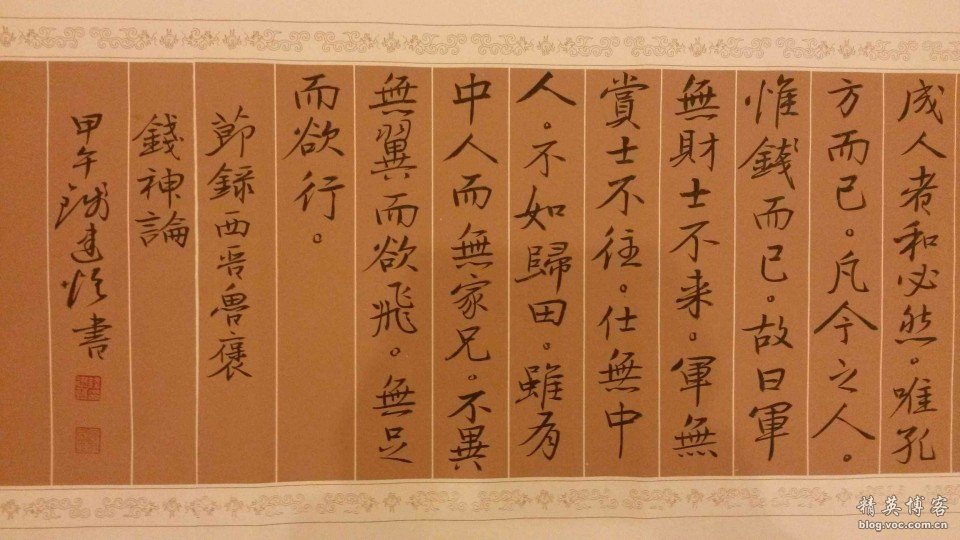 成人者和必然。唯孔
方而已。凡今之人。
惟錢而已。故曰軍
無財士不来。軍無
賞士不往。仕無中
人。不如歸田。雖有
中人而無家兄。不異
無翼而欲飛。無足
而欲行。
節録西晋魯褒
錢神論
甲午
建
書
精英博客
blog.voc.com.cn